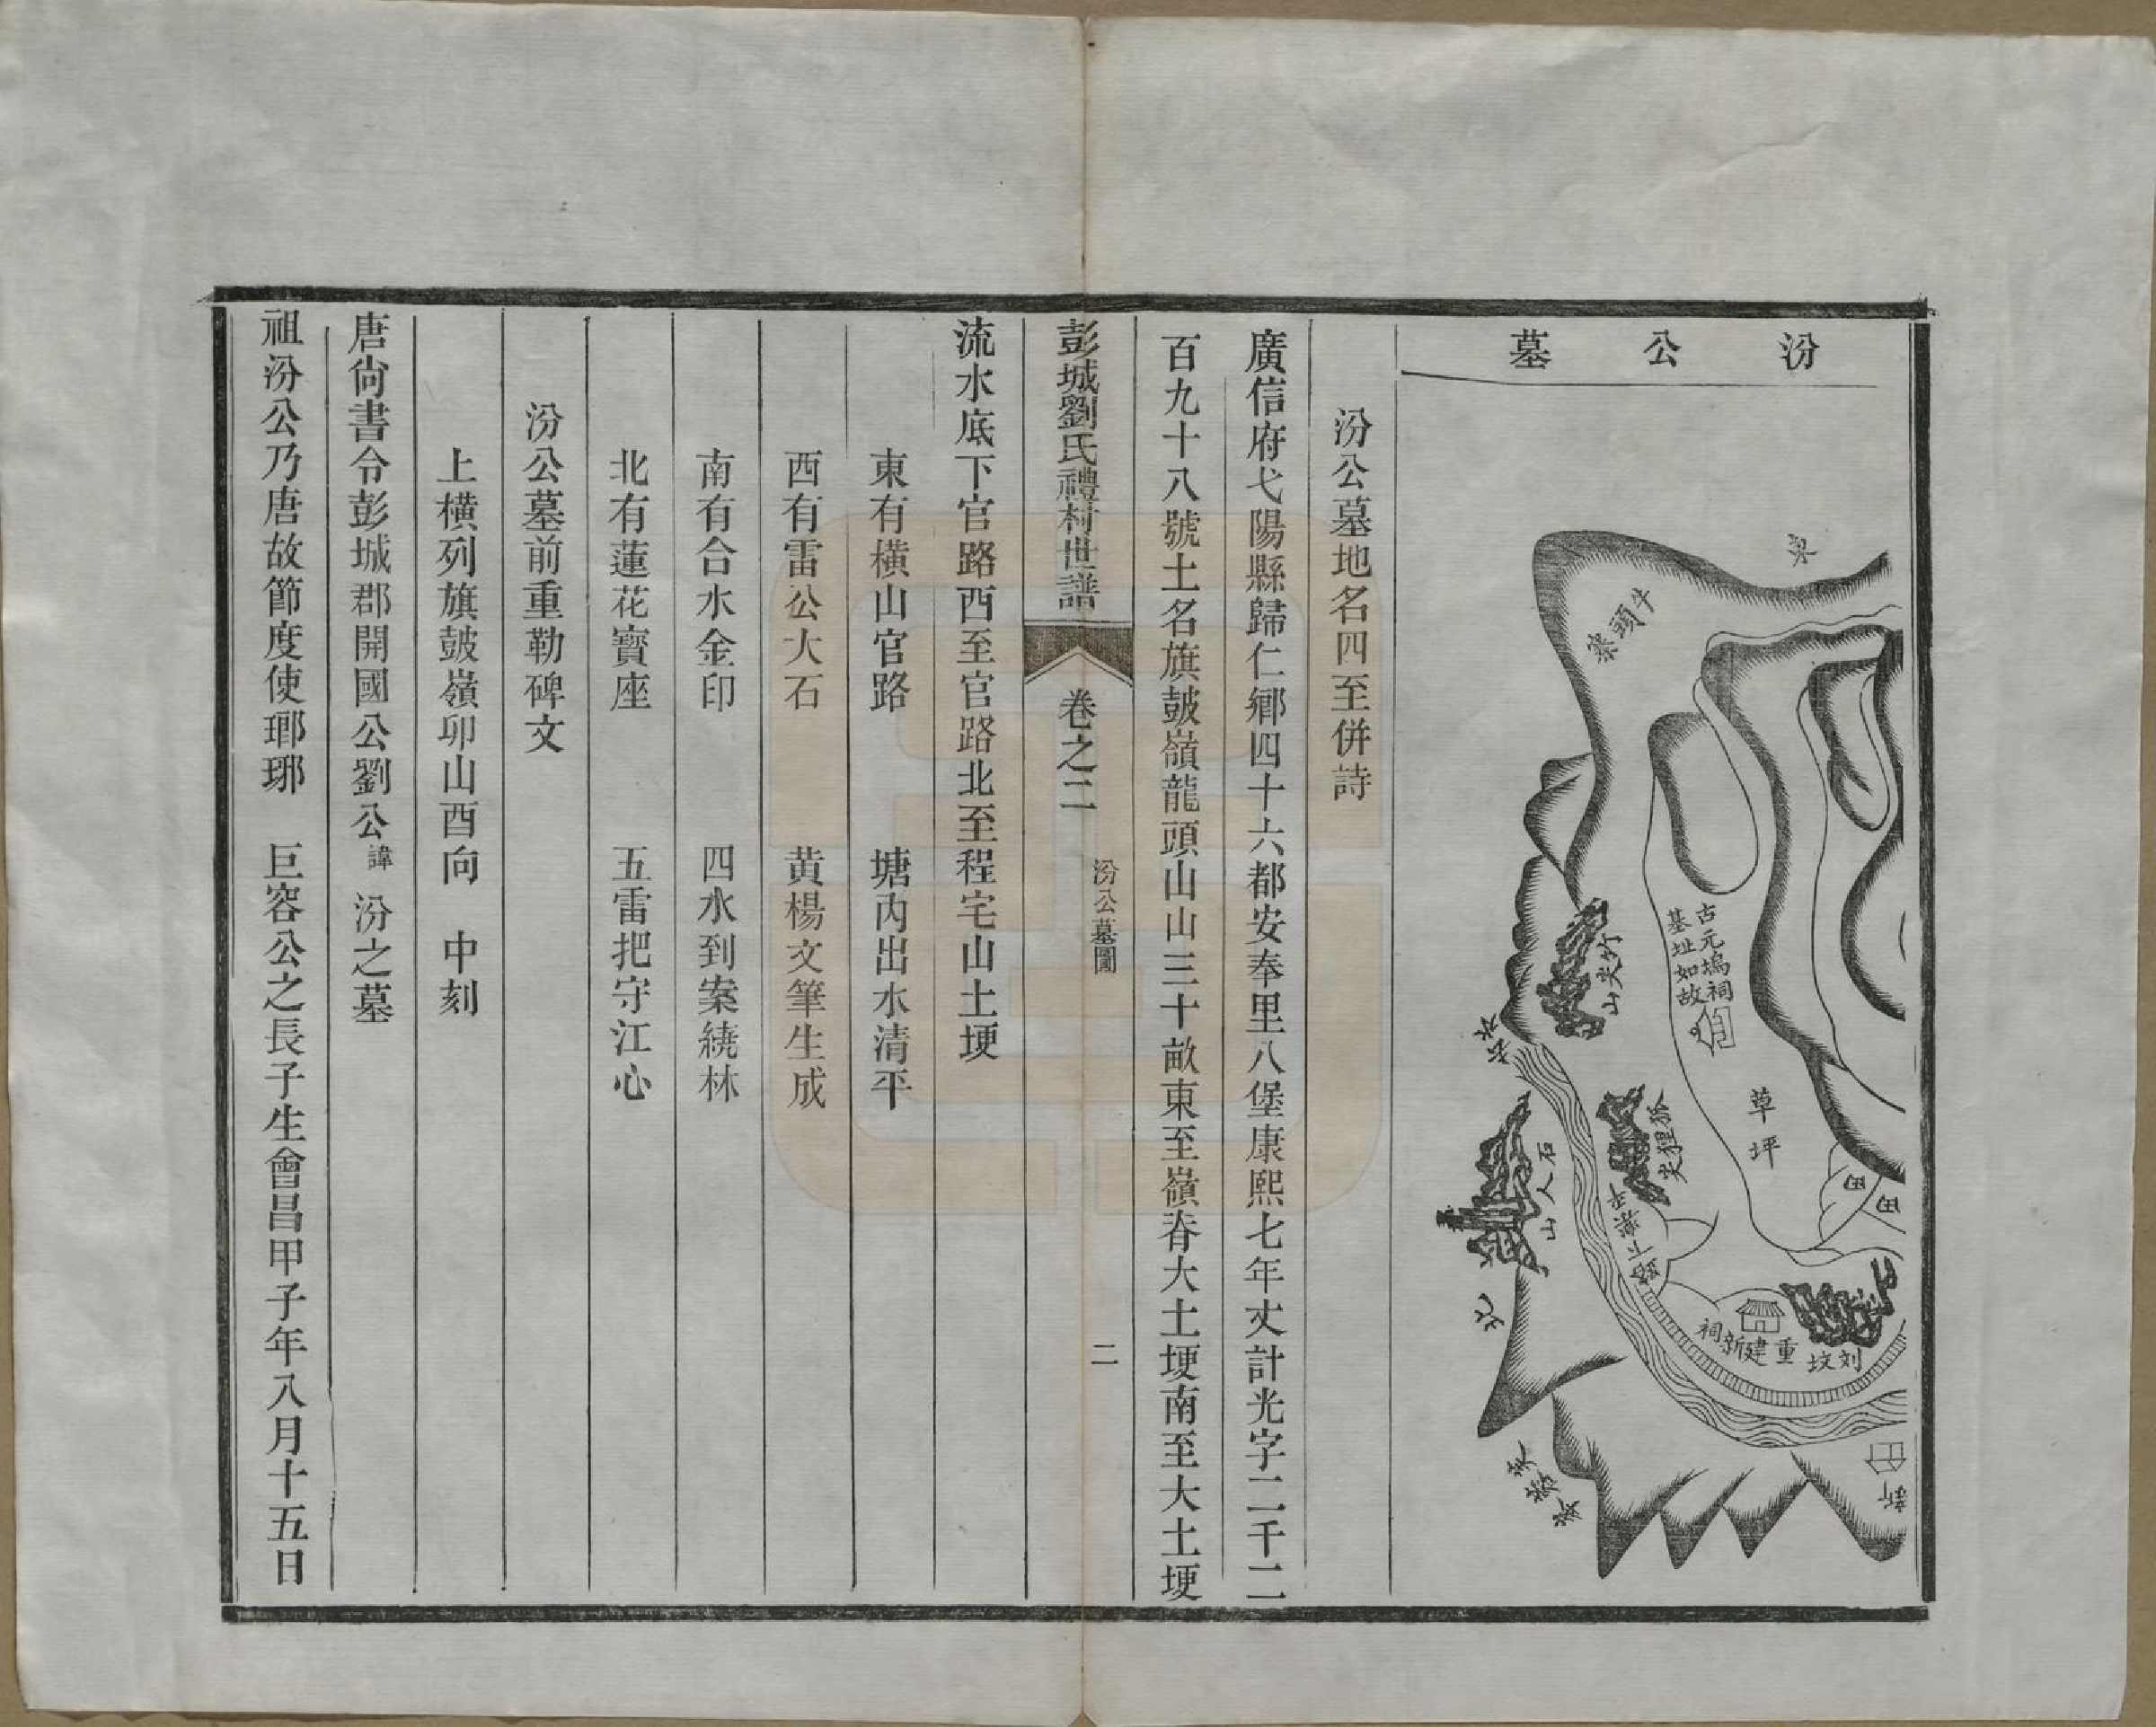 汾公墓
東
牛頭寨
竹尖山
古元塢祠
基址如故
水
草坪
狐狸尖
石人山
田
田
北
重建新祠
刘坟
新
汾公墓地名四至併詩
廣信府弋陽縣歸仁鄉四十六都安奉里八堡康熙七年丈計光字二千二
百九十八號土名旗皷嶺龍頭山山三十畝東至嶺脊大土埂南至大土埂
彭城劉氏禮村世譜
卷之二
汾公墓圖
二
流水底下官路西至官路北至程宅山土埂
東有橫山官路　塘內出水清平
西有雷公大石　黄楊文筆生成
南有合水金印　四水到案繞林
北有蓮花寶座　五雷把守江心
汾公墓前重勒碑文
上橫列旗皷嶺卯山酉向　中刻
唐尙書令彭城郡開國公劉公諱汾之墓
祖汾公乃唐故節度使瑯琊　巨容公之長子生會昌甲子年八月十五日